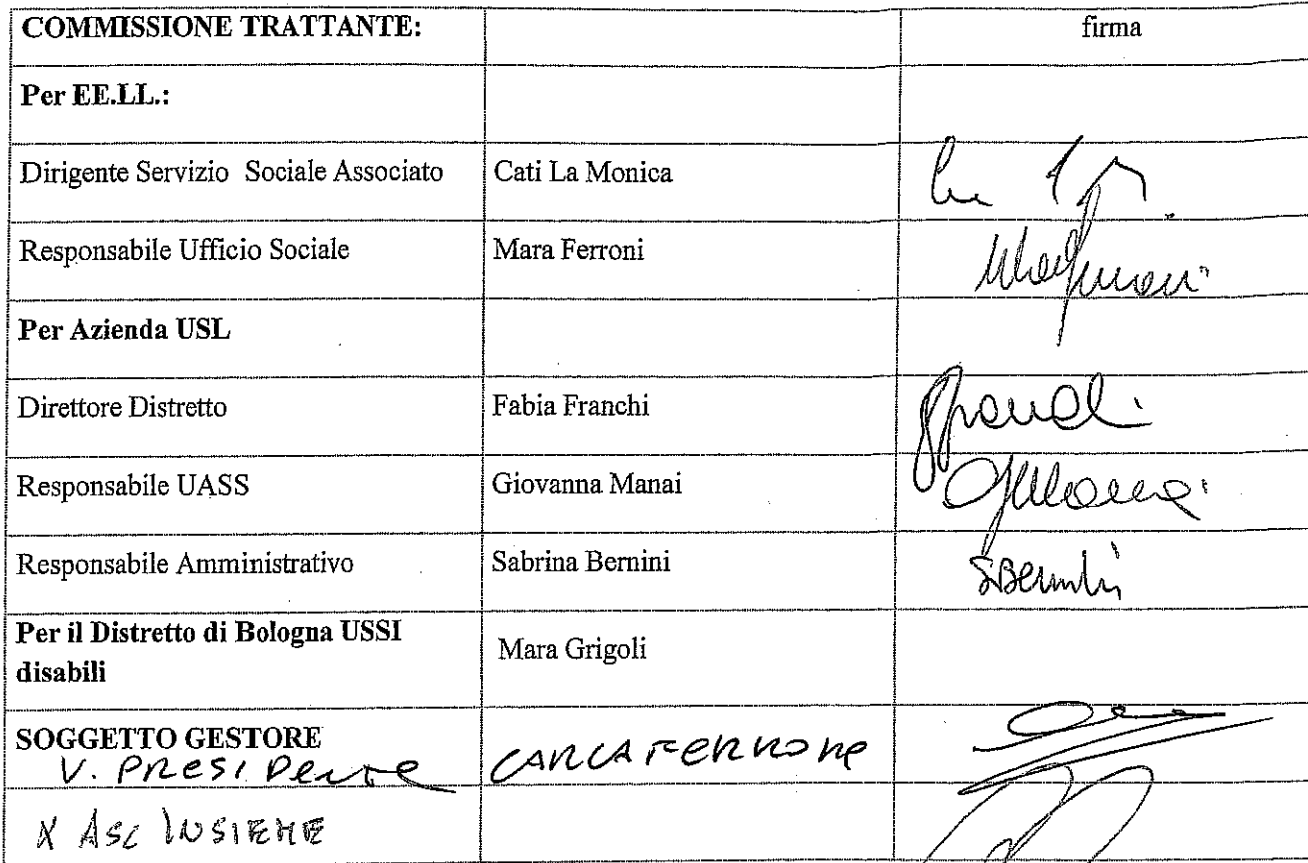 COMMISSIONE TRATTANTE: firma
Per EE.LL.:
Dirigente Servizio Sociale Associato Cati La Monica
Responsabile Ufficio Sociale Mara Ferroni
Per Azienda USL
Direttore Distretto Fabia Franchi
Responsabile UASS Giovanna Manai
Responsabile Amministrativo Sabrina Bernini SBernini
Per il Distretto di Bologna USSI
disabili Mara Grigoli
SOGGETTO GESTORE
V. PRESIDENTE CARLA FERRONE
X ASC INSIEME